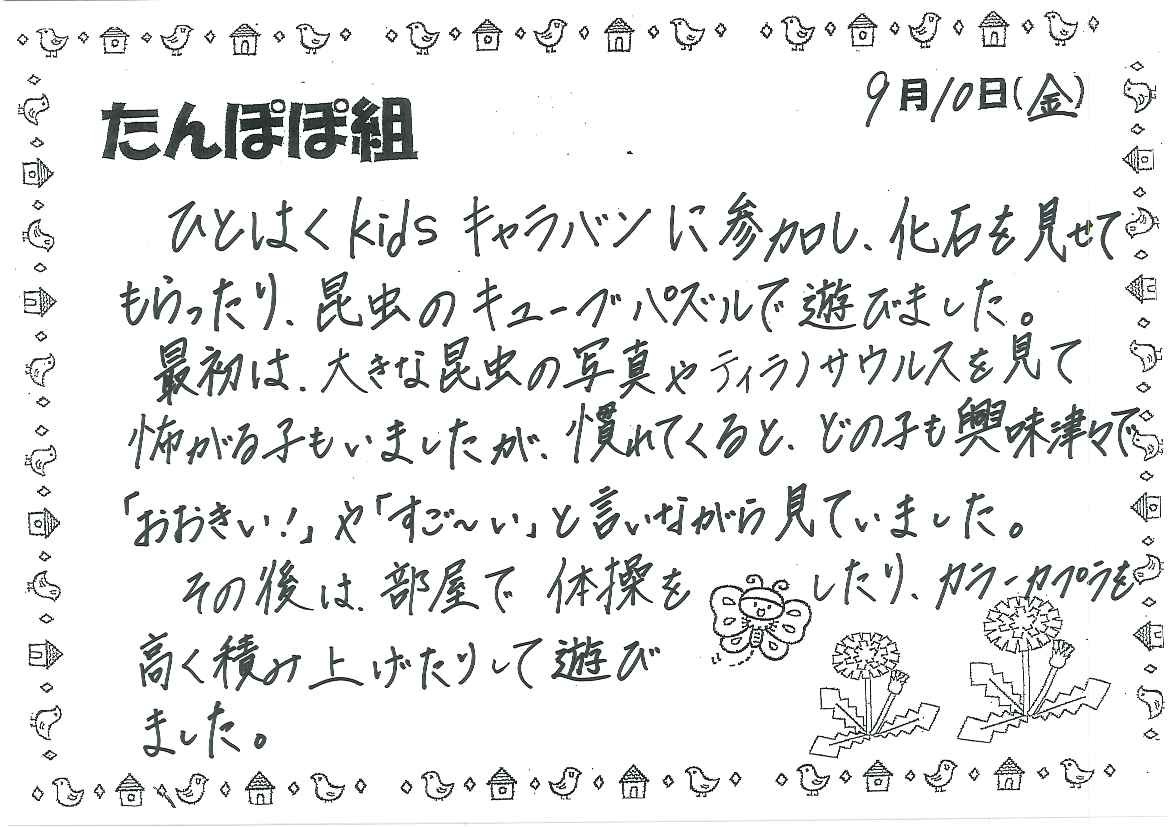 9月10日(金)
たんぽぽ組
ひとはくkidsキャラバンに参加し、化石を見せて
もらったり、昆虫のキューブパズルで遊びました。
最初は、大きな昆虫の写真やティラノサウルスを見て
怖がる子もいましたが、慣れてくると、どの子も興味津々で
「おおきい!」や「すご〜い」と言いながら見ていました。
その後は、部屋で体操をしたり、カラーカプラを
高く積み上げたりして遊び
ました。